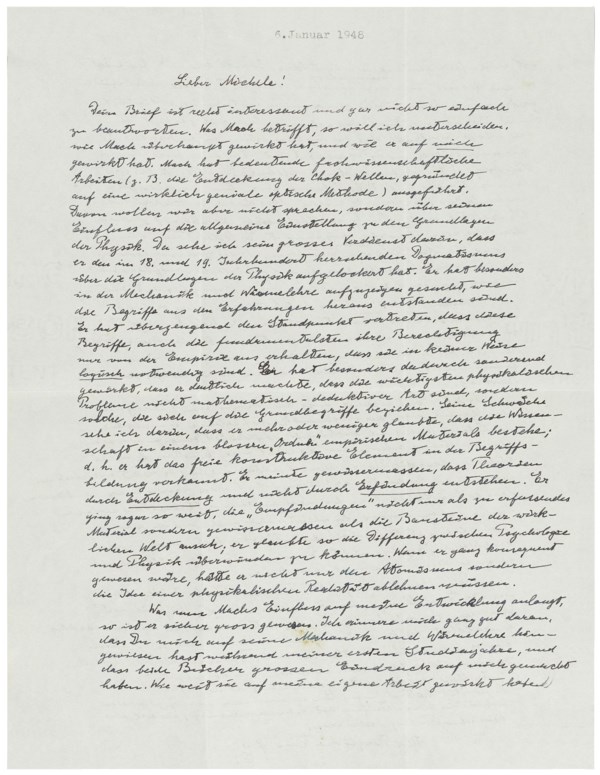 6. Januar 1948
Lieber Michele!
Dein Brief ist recht interessant und gar nicht so einfach
zu beantworten. Was Mach betrifft, so will ich unterscheiden,
wie Mach überhaupt gewirkt hat, und wie er auf mich
gewirkt hat. Mach hat bedeutende fachwissenschaftliche
Arbeiten (z. B. die Entdeckung der Chok-Wellen, gegründet
auf eine wirklich geniale optische Methode) ausgeführt.
Davon wollen wir aber nicht sprechen, sondern über seinen
Einfluss auf die allgemeine Einstellung zu den Grundlagen
der Physik. Da sehe ich sein grosses Verdienst darin, dass
er den im 18. und 19. Jahrhundert herrschenden Dogmatismus
über die Grundlagen der Physik aufgelockert hat. Er hat besonders
in der Mechanik und Wärmelehre aufzuzeigen gesucht, wie
die Begriffe aus den Erfahrungen heraus entstanden sind.
Er hat überzeugend den Standpunkt vertreten, dass diese
Begriffe, auch die fundamentalsten ihre Berechtigung
nur von der Empirie aus erhalten, dass sie in keiner Weise
logisch notwendig sind. Er hat besonders dadurch sanierend
gewirkt, dass er deutlich machte, dass die wichtigsten physikalischen
Probleme nicht mathematisch-deduktiver Art sind, sondern
solche, die sich auf die Grundbegriffe beziehen. Seine Schwäche
sehe ich darin, dass er mehr oder weniger glaubte, dass die Wissen-
schaft in einem blossen „Ordnen" empirischen Materials bestehe;
d. h. er hat das freie konstruktive Element in der Begriffs-
bildung verkannt. Er meinte gewissermassen, dass Theorien
durch Entdeckung und nicht durch Erfindung entstehen. Er
ging sogar so weit, die „Empfindungen" nicht nur als zu erfassendes
Material sondern gewissermassen als die Bausteine der wirk-
lichen Welt ansah; er glaubte so die Differenz zwischen Psychologie
und Physik überwinden zu können. Wenn er ganz konsequent
gewesen wäre, hätte er nicht nur den Atomismus sondern
die Idee einer physikalischen Realität ablehnen müssen.
Was nun Machs Einfluss auf meine Entwicklung anlangt,
so ist er sicher gross gewesen. Ich erinnere mich ganz gut daran,
dass Du mich auf seine Mechanik und Wärmelehre hin-
gewiesen hast während meiner ersten Studienjahre, und
dass beide Bücher grossen Eindruck auf mich gemacht
haben. Wie weit sie auf meine eigene Arbeit gewirkt haben,